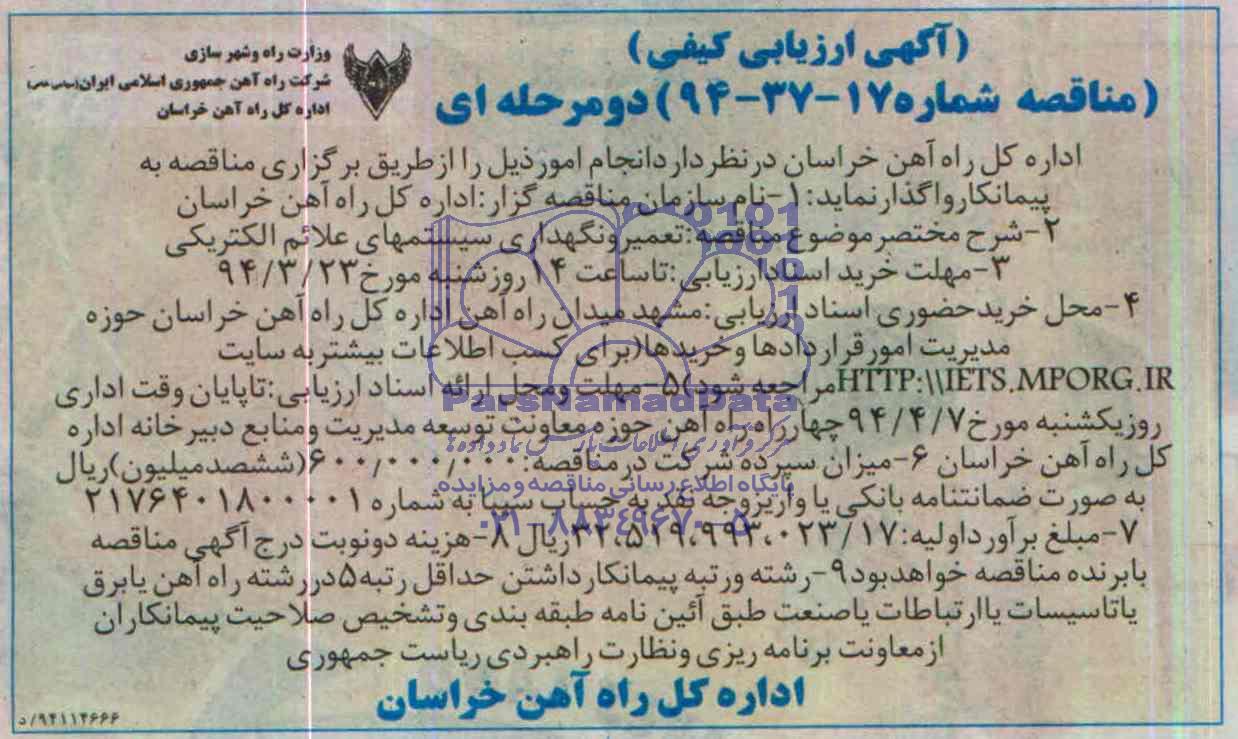 (آگهی ارزیابی کیفی)
(مناقصه شماره ۱۷-۳۷-۹۴) دومرحله ای
وزارت راه وشهر سازی
شرکت راه آهن جمهوری اسلامی ایران (سهامی خاص)
اداره کل راه آهن خراسان
اداره کل راه آهن خراسان درنظر دارد انجام امور ذیل را از طریق برگزاری مناقصه به
پیمانکار واگذار نماید: ۱-نام سازمان مناقصه گزار: اداره کل راه آهن خراسان
۲-شرح مختصر موضوع مناقصه: تعمیر ونگهداری سیستمهای علائم الکتریکی
۳-مهلت خرید اسناد ارزیابی: تا ساعت ۱۴ روز شنبه مورخ ۹۴/۳/۲۳
۴-محل خرید حضوری اسناد ارزیابی: مشهد میدان راه آهن اداره کل راه آهن خراسان حوزه
مدیریت امور قراردادها وخریدها (برای کسب اطلاعات بیشتر به سایت
HTTP:\\IETS.MPORG.IR مراجعه شود) ۵-مهلت ومحل ارائه اسناد ارزیابی: تا پایان وقت اداری
روز یکشنبه مورخ ۹۴/۴/۷ چهارراه راه آهن حوزه معاونت توسعه مدیریت ومنابع دبیرخانه اداره
کل راه آهن خراسان ۶-میزان سپرده شرکت در مناقصه: ۶۰۰/۰۰۰/۰۰۰ (ششصد میلیون) ریال
به صورت ضمانتنامه بانکی یا واریز وجه نقد به حساب سیبا به شماره ۲۱۷۶۴۰۱۸۰۰۰۰۱
۷-مبلغ برآورد اولیه: ۳۲،۵۲۹،۹۹۳،۰۲۳/۱۷ ریال ۸-هزینه دو نوبت درج آگهی مناقصه
با برنده مناقصه خواهد بود ۹-رشته ورتبه پیمانکار داشتن حداقل رتبه ۵ در رشته راه آهن یا برق
یا تاسیسات یا ارتباطات یا صنعت طبق آئین نامه طبقه بندی وتشخیص صلاحیت پیمانکاران
از معاونت برنامه ریزی ونظارت راهبردی ریاست جمهوری
اداره کل راه آهن خراسان
۹۴۱۱۴۶۶۶/د
ParsNamadData
مرکز فرآوری اطلاعات پارس نماد داده ها
پایگاه اطلاع رسانی مناقصه و مزایده
۰۲۱-۸۸۳۴۹۶۷۰-۵